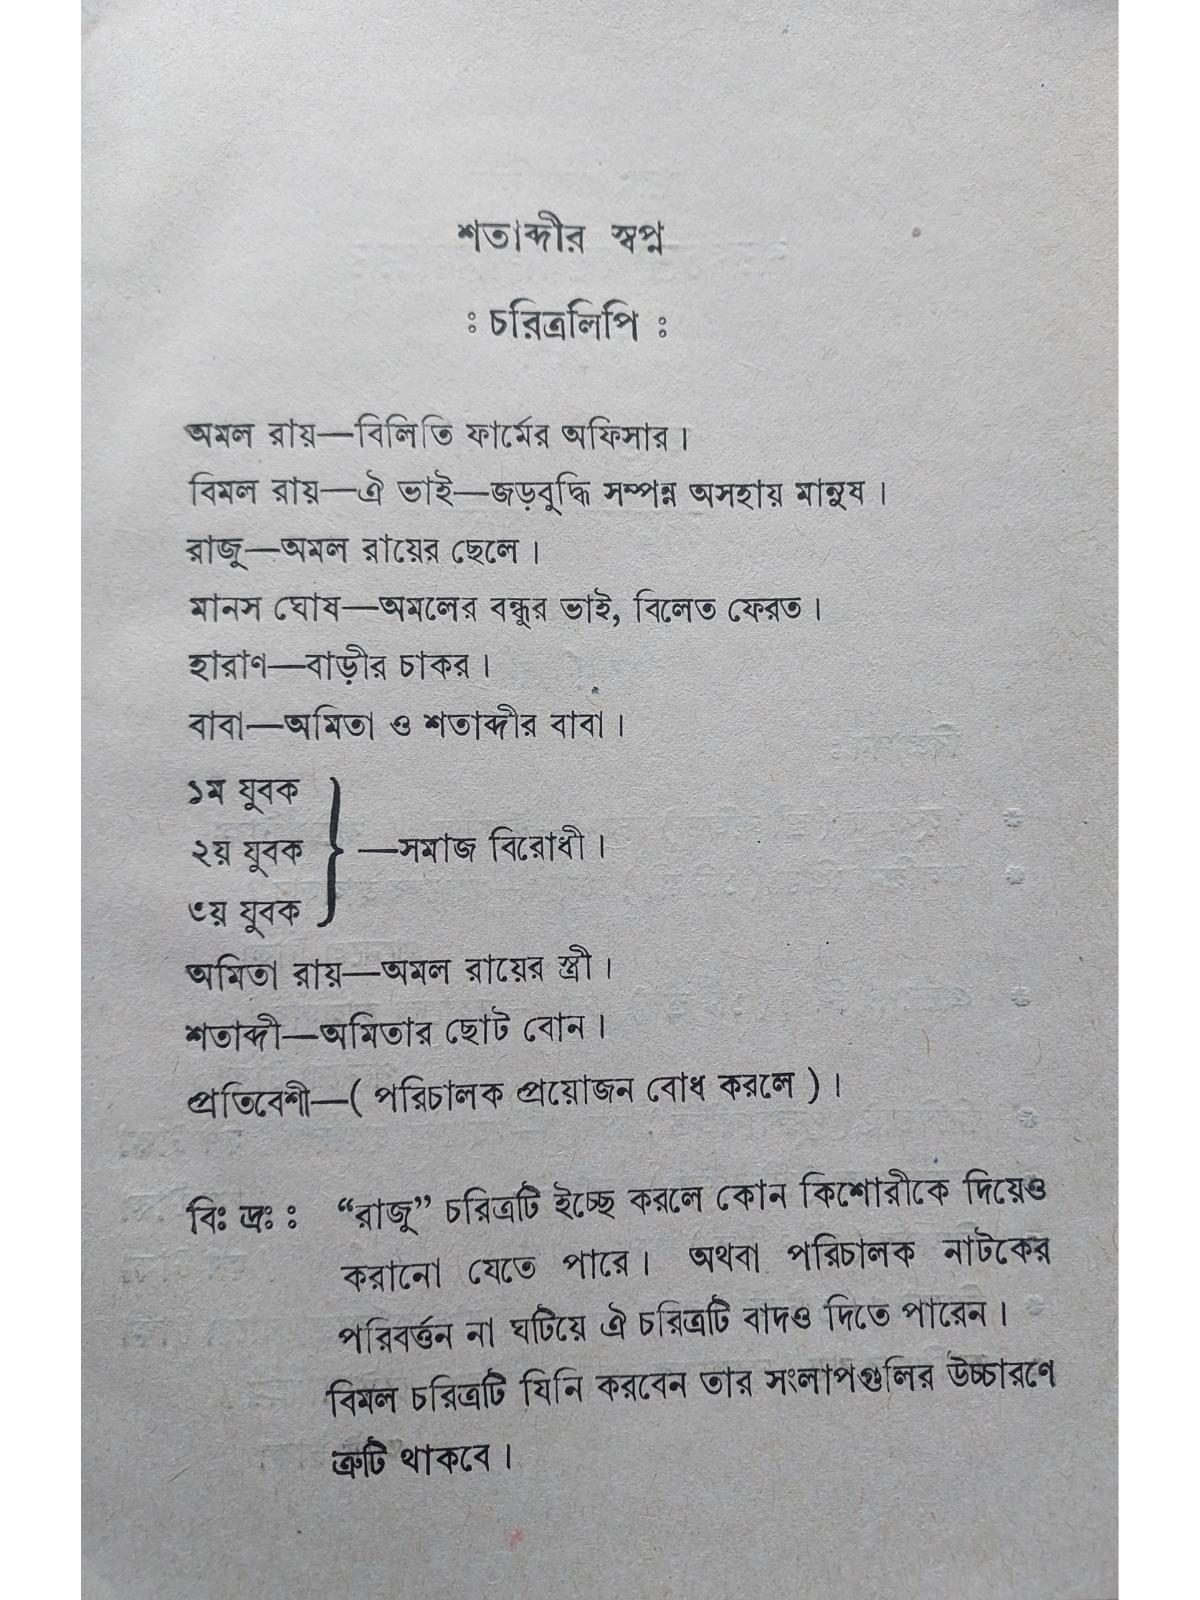 শতাব্দীর স্বপ্ন
ঃ চরিত্রলিপি ঃ
অমল রায়—বিলিতি ফার্মের অফিসার।
বিমল রায়—ঐ ভাই—জড়বুদ্ধি সম্পন্ন অসহায় মানুষ।
রাজু—অমল রায়ের ছেলে।
মানস ঘোষ—অমলের বন্ধুর ভাই, বিলেত ফেরত।
হারাণ—বাড়ীর চাকর।
বাবা—অমিতা ও শতাব্দীর বাবা।
১ম যুবক
২য় যুবক } —সমাজ বিরোধী।
৩য় যুবক
অমিতা রায়—অমল রায়ের স্ত্রী।
শতাব্দী—অমিতার ছোট বোন।
প্রতিবেশী—( পরিচালক প্রয়োজন বোধ করলে )।
বিঃ দ্রঃ ঃ “রাজু” চরিত্রটি ইচ্ছে করলে কোন কিশোরীকে দিয়েও
করানো যেতে পারে। অথবা পরিচালক নাটকের
পরিবর্ত্তন না ঘটিয়ে ঐ চরিত্রটি বাদও দিতে পারেন।
বিমল চরিত্রটি যিনি করবেন তার সংলাপগুলির উচ্চারণে
ত্রুটি থাকবে।